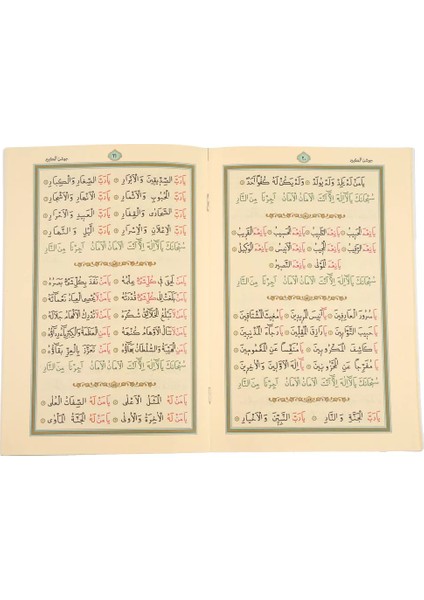 جوشن الكبير ٢٠
يَا مَنْ لَمْ يَلِدْ وَلَمْ يُولَدْ ۞ وَلَمْ يَكُنْ لَهُ كُفُوًا اَحَدٌ ۞
سُبْحَانَكَ يَا لَا اِلٰهَ اِلَّا اَنْتَ الْاَمَانُ الْاَمَانُ اَجِرْنَا مِنَ النَّارِ
يَا نِعْمَ يَا نِعْمَ يَا نِعْمَ الْقَرِيبُ
يَا نِعْمَ الرَّقِيبُ ۞ يَا نِعْمَ الْمُجِيبُ ۞ يَا نِعْمَ الْاَنِيسُ ۞ يَا نِعْمَ الْوَكِيلُ ۞
يَا نِعْمَ الْمَوْلٰى ۞ يَا نِعْمَ النَّصِيرُ ۞
سُبْحَانَكَ يَا لَا اِلٰهَ اِلَّا اَنْتَ الْاَمَانُ الْاَمَانُ اَجِرْنَا مِنَ النَّارِ
يَا سُرُورَ الْعَارِفِينَ ۞ يَا اَنِيسَ الْمُرِيدِينَ ۞ يَا مُغِيثَ الْمُشْتَاقِينَ ۞
يَا حَبِيبَ التَّوَّابِينَ ۞ يَا رَازِقَ الْمُقِلِّينَ ۞ يَا رَجَاءَ الْمُذْنِبِينَ ۞
يَا كَاشِفَ الْمَكْرُوبِينَ ۞ يَا مُنَفِّسًا عَنِ الْمَغْمُومِينَ ۞
يَا مُفَرِّجًا عَنِ الْمَحْزُونِينَ ۞ يَا اِلٰهَ الْاَوَّلِينَ وَالْاٰخِرِينَ ۞
سُبْحَانَكَ يَا لَا اِلٰهَ اِلَّا اَنْتَ الْاَمَانُ الْاَمَانُ اَجِرْنَا مِنَ النَّارِ
يَا رَبَّ الْجَنَّةِ وَالنَّارِ ۞ يَا رَبَّ النَّبِيِّينَ وَالْاَخْيَارِ ۞
٢١ جوشن الكبير
يَا رَبَّ الصِّدِّيقِينَ وَالْاَبْرَارِ ۞ يَا رَبَّ الصِّغَارِ وَالْكِبَارِ ۞
يَا رَبَّ الْحُبُوبِ وَالْاَثْمَارِ ۞ يَا رَبَّ الْاَنْهَارِ وَالْاَشْجَارِ ۞
يَا رَبَّ الصَّحَارٰى وَالْقِفَارِ ۞ يَا رَبَّ الْعَبِيدِ وَالْاَحْرَارِ ۞
يَا رَبَّ الْاِعْلَانِ وَالْاَسْرَارِ ۞ يَا رَبَّ الَّيْلِ وَالنَّهَارِ ۞
سُبْحَانَكَ يَا لَا اِلٰهَ اِلَّا اَنْتَ الْاَمَانُ الْاَمَانُ اَجِرْنَا مِنَ النَّارِ
يَا مَنْ لَحِقَ فِي كُلِّ شَيْءٍ عِلْمُهُ ۞ يَا مَنْ نَفَذَ بِكُلِّ شَيْءٍ بَصَرُهُ ۞
يَا مَنْ بَلَغَتْ اِلٰى كُلِّ شَيْءٍ قُدْرَتُهُ ۞ يَا مَنْ لَا يُحْصِي الْعِبَادُ نَعْمَائَهُ ۞
يَا مَنْ لَا تَبْلُغُ الْخَلَائِقُ شُكْرَهُ ۞ يَا مَنْ لَا تُدْرِكُ الْاَفْهَامُ جَلَالَهُ ۞
يَا مَنْ لَا تَنَالُ الْاَوْهَامُ كُنْهَهُ ۞ يَا مَنِ الْعَظَمَةُ وَالْكِبْرِيَاءُ رِدَاؤُهُ ۞
يَا مَنِ الْهَيْبَةُ وَالسُّلْطَانُ بَهَاؤُهُ ۞ يَا مَنْ تَعَزَّزَ بِالْعِزِّ بَقَاؤُهُ ۞
سُبْحَانَكَ يَا لَا اِلٰهَ اِلَّا اَنْتَ الْاَمَانُ الْاَمَانُ اَجِرْنَا مِنَ النَّارِ
يَا مَنْ لَهُ الْمَثَلُ الْاَعْلٰى ۞ يَا مَنْ لَهُ الصِّفَاتُ الْعُلٰى ۞
يَا مَنْ لَهُ الْاٰخِرَةُ وَالْاُولٰى ۞ يَا مَنْ لَهُ الْجَنَّةُ الْمَأْوٰى ۞